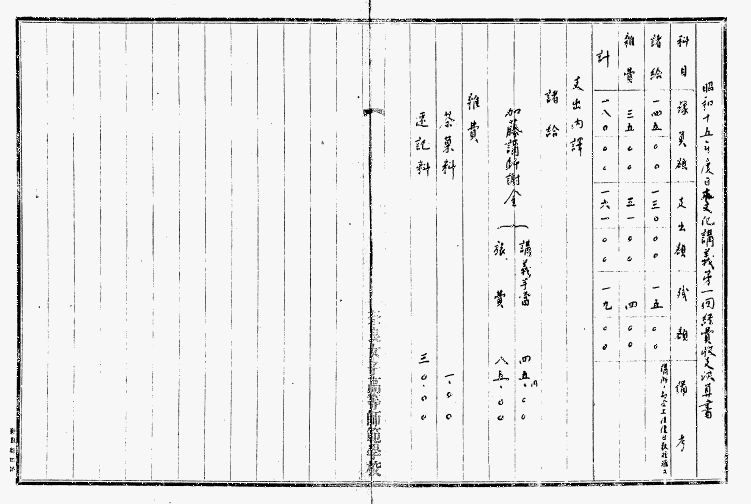 昭和十五年度日本文化講義第一回経費収支決算書
科目 豫算額 支出額 残額 備考
諸給 一四五〇〇 一三〇〇〇 一五〇〇
雑費 三五〇〇 三一〇〇 四〇〇
計 一八〇〇〇 一六一〇〇 一九〇〇
支出内譯
諸給
加藤講師謝金 講義手當 四五.〇〇
旅費 八五.〇〇
雑費
茶菓料 一.〇〇
速記料 三〇.〇〇
奈良女子高等師範學校